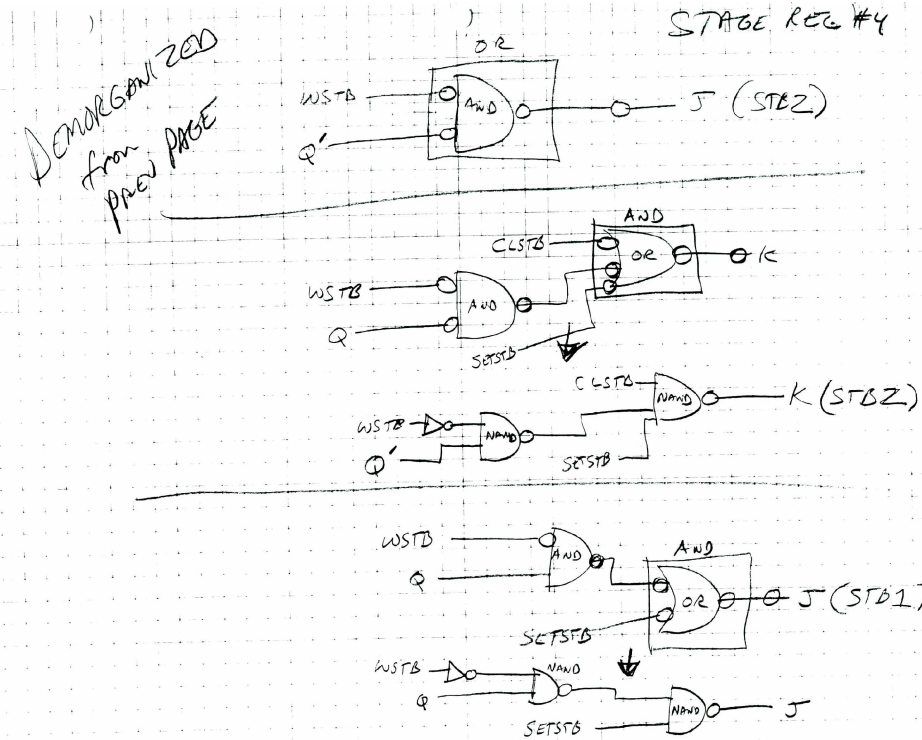 STAGE REG #4
DEMORGANIZED
from
PREV PAGE
OR
WSTB
AND
J (STB2)
Q'
AND
CLSTB
OR
K
WSTB
AND
Q
SETSTB
CLSTB
NAND
K (STB2)
WSTB
NAND
Q'
SETSTB
WSTB
AND
AND
Q
OR
J (STB1)
SETSTB
WSTB
NAND
Q
NAND
J
SETSTB